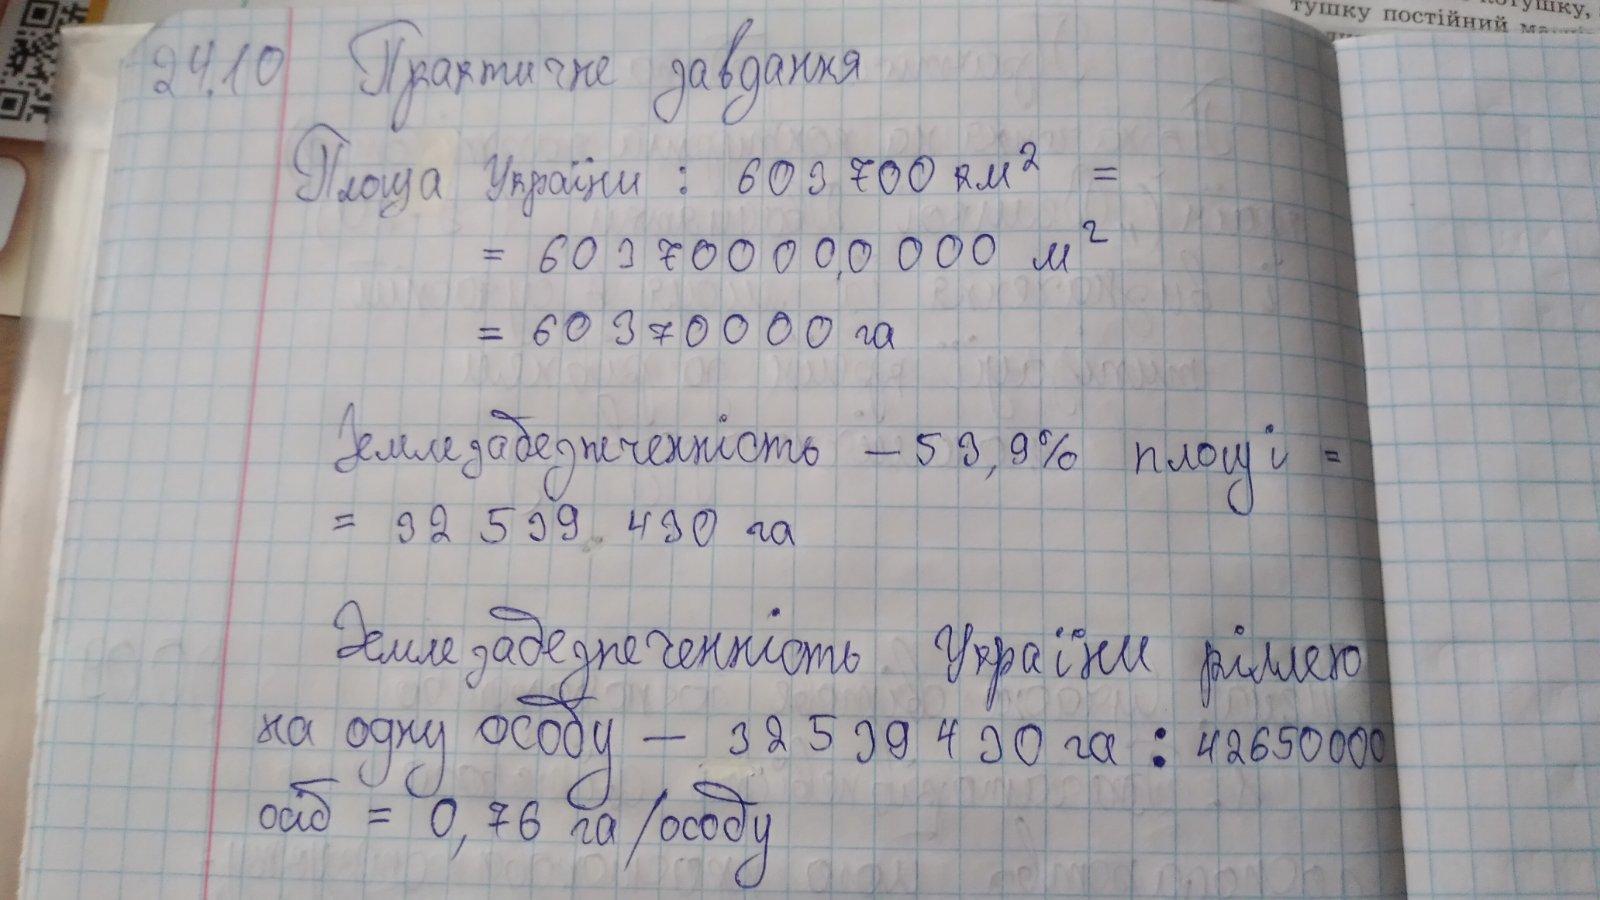 котушку,
тушку постійний
24.10 Практичне завдання
Площа України : 603 700 км² =
= 603 700 000 000 м²
= 60 370 000 га
Землезабезпеченність – 53,9% площі =
= 32 539 430 га
Землезабезпеченність України ріллею
на одну особу – 32 539 430 га : 42650000
осіб = 0,76 га/особу